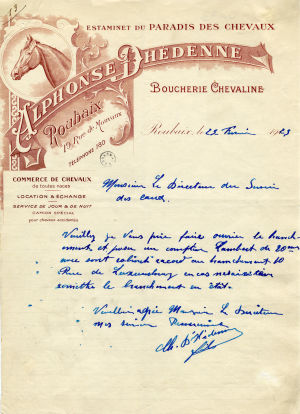 ESTAMINET DU PARADIS DES CHEVAUX
ALPHONSE DHÉDENNE
BOUCHERIE CHEVALINE
Roubaix
19, Rue de Mouvaux
TÉLÉPHONE 180
Roubaix, le 22 Février 1923
COMMERCE DE CHEVAUX
de toutes races
LOCATION & ÉCHANGE
SERVICE DE JOUR & DE NUIT
CAMION SPÉCIAL
pour chevaux accidentés
Monsieur le Directeur du Service
des eaux
Veuillez je vous prie faire ouvrir le branche
ment et poser un compteur Lambert de 20 mm
avec son robinet au branchement 10
Rue de Luxembourg en cas
remettre le branchement en état.
Veuillez agréer Monsieur le Directeur
mes